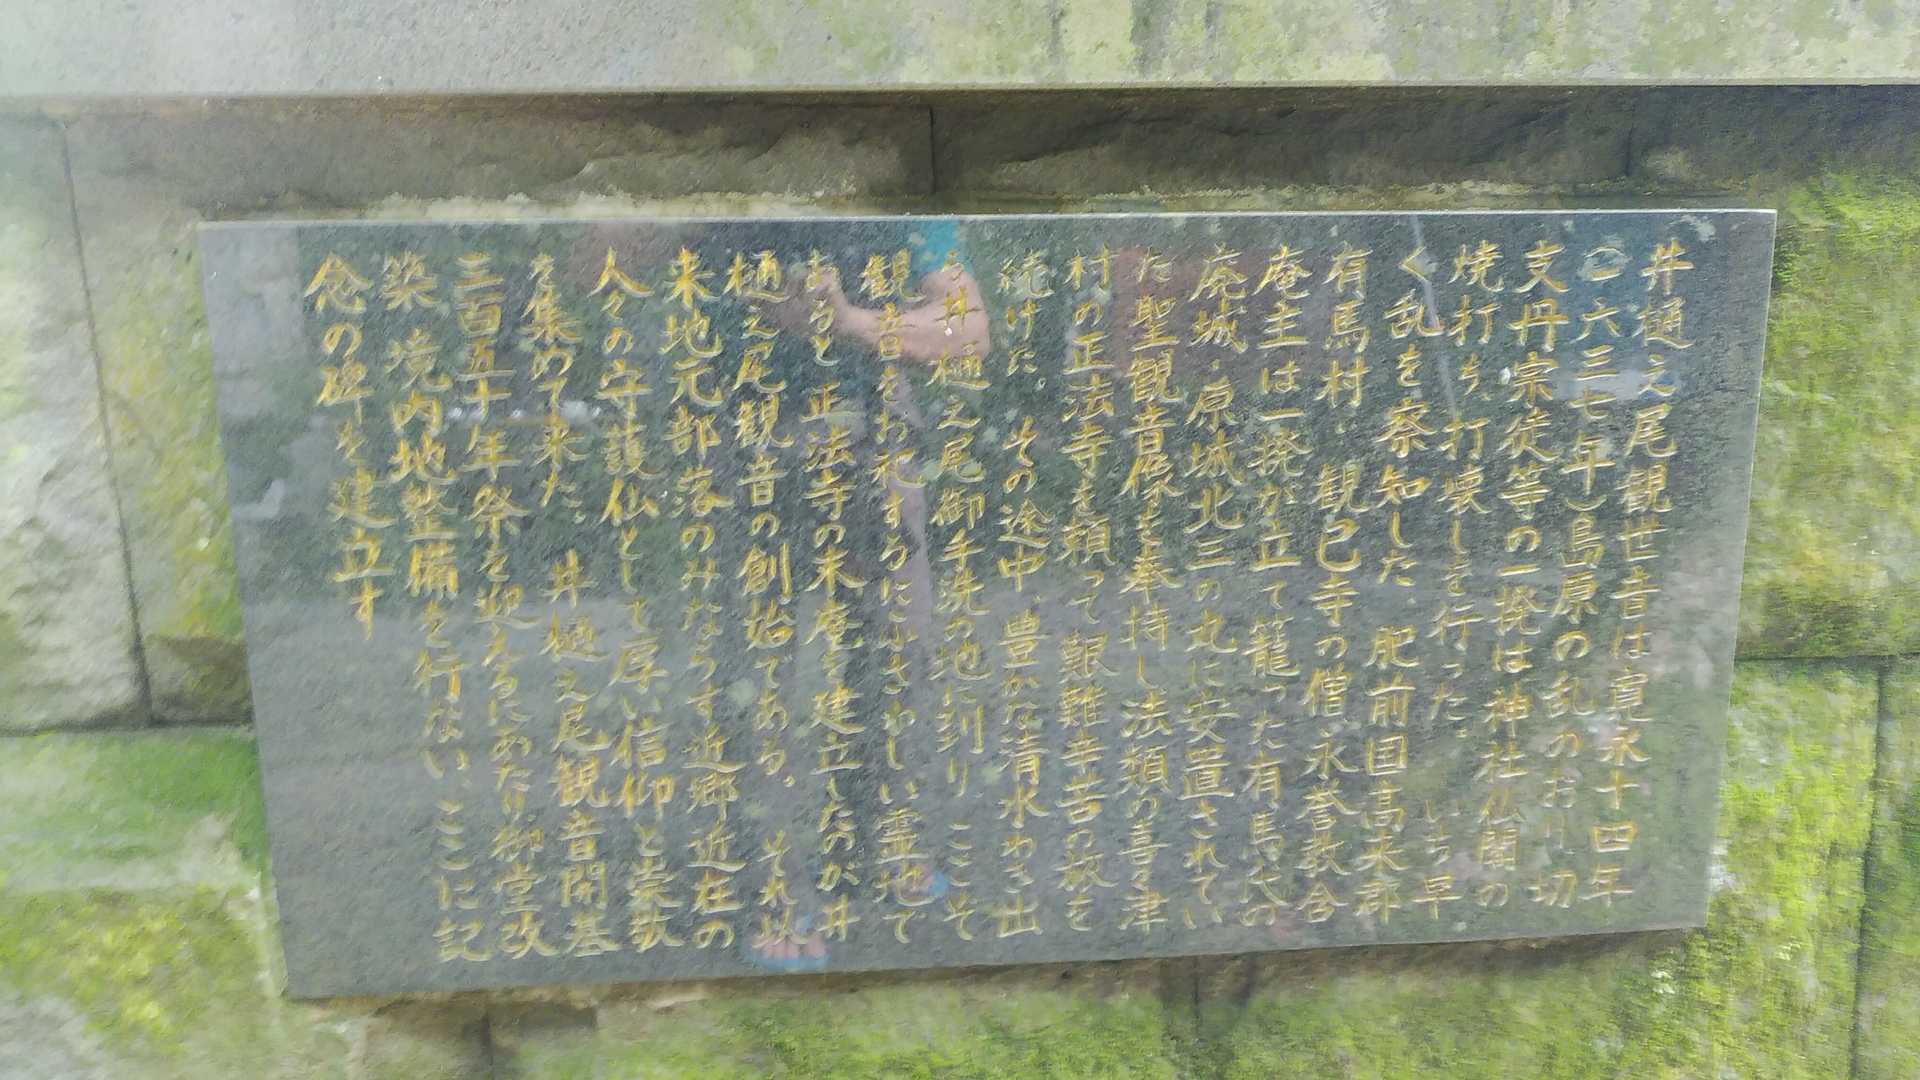 井樋之尾観世音は寛永十四年
(一六三七年)島原の乱のおり、切
支丹宗徒等の一揆は神社仏閣の
焼打ち、打壊しを行った。いち早
く乱を察知した、肥前国高来郡
有馬村、観巳寺の僧、永誉教合
庵主は一揆が立て籠った有馬氏の
廃城・原城北三の丸に安置されてい
た聖観音像を奉持し法類の喜々津
村の正法寺を頼って艱難辛苦の旅を
続けた。その途中、豊かな清水わき出
る井樋之尾御手洗の地に到り、ここそ
観音をお祀するにふさわしい霊地で
あると正法寺の末庵を建立したのが井
樋之尾観音の創始である。それ以
来地元部落のみならず近郷近在の
人々の守護仏として厚い信仰と崇敬
を集めて来た。井樋之尾観音開基
三百五十年祭を迎えるにあたり御堂改
築、境内地整備を行ない、ここに記
念の碑を建立す